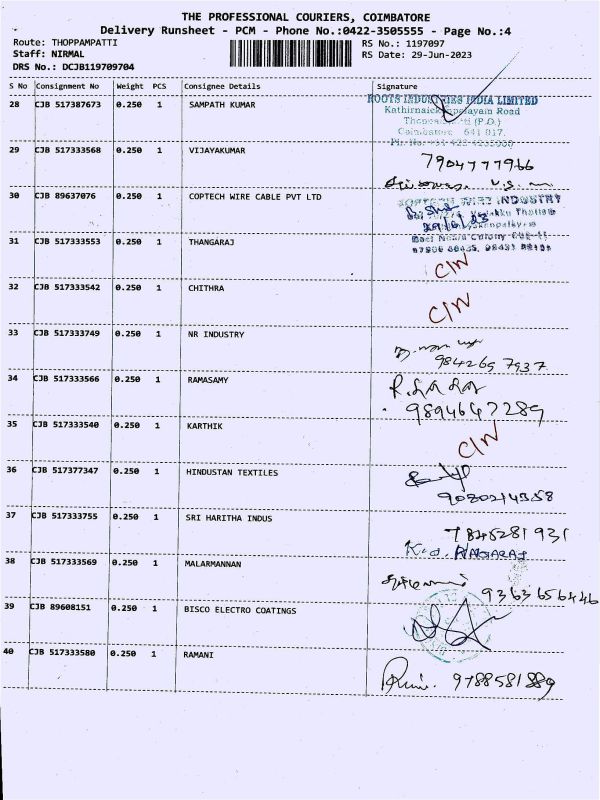 THE PROFESSIONAL COURIERS, COIMBATORE
Delivery Runsheet - PCM - Phone No.:0422-3505555 - Page No.:4
Route: THOPPAMPATTI
RS No.: 1197097
Staff: NIRMAL
RS Date: 29-Jun-2023
DRS No.: DCJB119709704
S No Consignment No Weight PCS Consignee Details Signature
28 CJB 517387673 0.250 1 SAMPATH KUMAR
ROOTS INDUSTRIES INDIA LIMITED
Road
(P.O.)
Coimbatore 641 017.
29 CJB 517333568 0.250 1 VIJAYAKUMAR
7904777966
30 CJB 89637076 0.250 1 COPTECH WIRE CABLE PVT LTD
INDUSTRY
31 CJB 517333553 0.250 1 THANGARAJ
C/N
32 CJB 517333542 0.250 1 CHITHRA
C/N
33 CJB 517333749 0.250 1 NR INDUSTRY
984269 7937
34 CJB 517333566 0.250 1 RAMASAMY
9894647289
35 CJB 517333540 0.250 1 KARTHIK
C/N
36 CJB 517377347 0.250 1 HINDUSTAN TEXTILES
37 CJB 517333755 0.250 1 SRI HARITHA INDUS
7845281931
38 CJB 517333569 0.250 1 MALARMANNAN
9363656446
39 CJB 89608151 0.250 1 BISCO ELECTRO COATINGS
40 CJB 517333580 0.250 1 RAMANI
9788581889